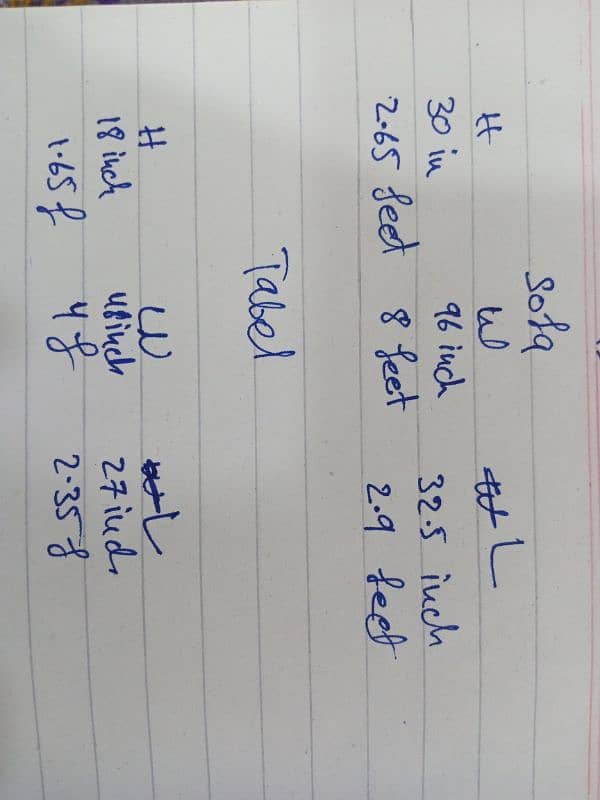 Sofa
H W L
30 in 96 inch 32.5 inch
2.65 feet 8 feet 2.9 feet
Tabel
H W L
18 inch 48 inch 27 inch
1.65 f 4 f 2.35 f